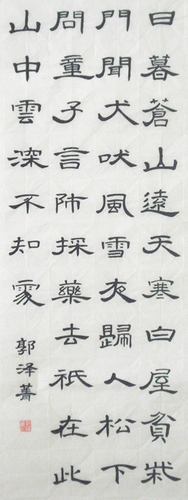 日暮蒼山遠天寒白屋貧柴
門聞犬吠風雪夜歸人松下
問童子言師採藥去祇在此
山中雲深不知處
郭泽